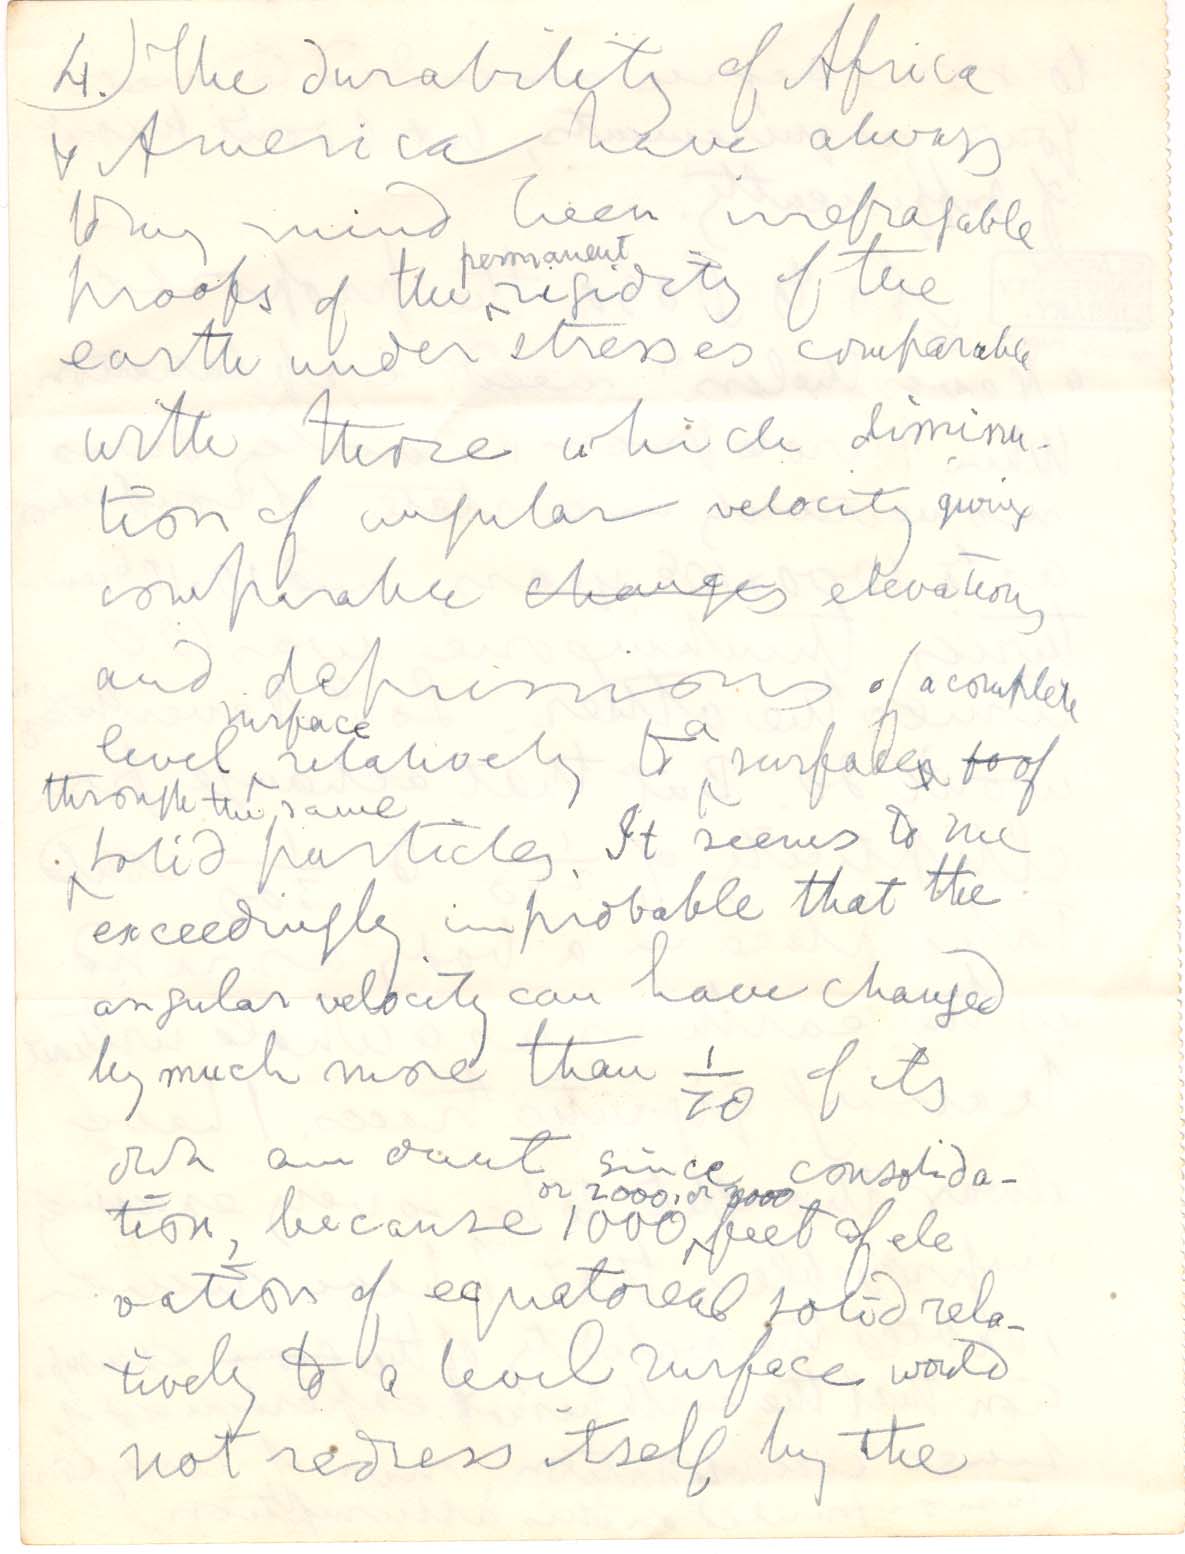 4.) The durability of Africa
& America have always
to my mind been irrefragable
permanent
proofs of the rigidity of the
earth under stresses comparable
with those which diminu-
tion of angular velocity giving
comparable changes elevations
and depressions of a complete
surface a
level relatively to surfaces to of
through the same
solid particles. It seems to me
exceedingly improbable that the
angular velocity can have changed
by much more than 1/70 of its
own amount since consolida-
or 2000, or 3000
tion, because 1000 feet of ele
vation of equatoreal solid rela-
tively to a level surface would
not redress itself by the